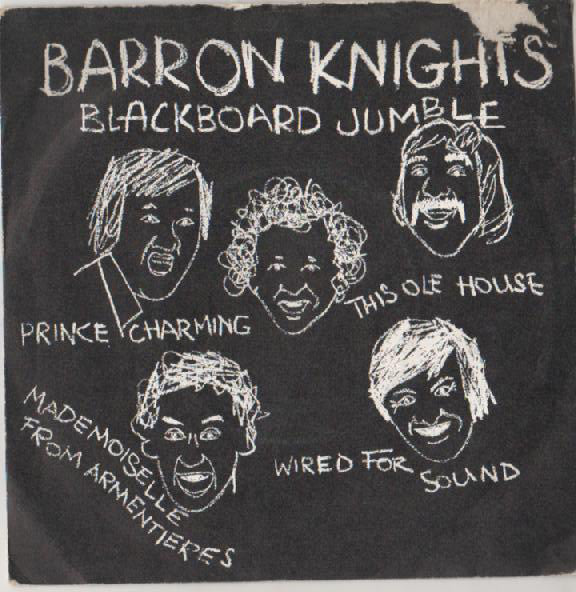 BARRON KNIGHTS
BLACKBOARD JUMBLE
PRINCE CHARMING
THIS OLE HOUSE
MADEMOISELLE
FROM ARMENTIERES
WIRED FOR SOUND